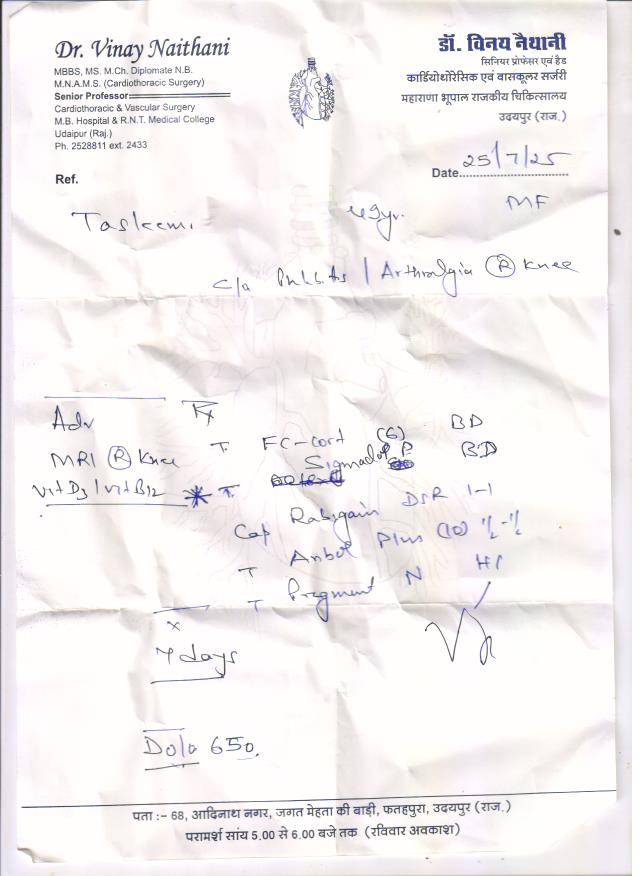 Dr. Vinay Naithani
MBBS, MS. M.Ch. Diplomate N.B.
M.N.A.M.S. (Cardiothoracic Surgery)
Senior Professor
Cardiothoracic & Vascular Surgery
M.B. Hospital & R.N.T. Medical College
Udaipur (Raj.)
Ph. 2528811 ext. 2433
डॉ. विनय नैथानी
सिनियर प्रोफेसर एवं हैड
कार्डियोथोरेसिक एवं वासकूलर सर्जरी
महाराणा भूपाल राजकीय चिकित्सालय
उदयपुर (राज.)
Date 25/7/25
Ref.
MF
Taskeem.
c/o / Arthralgia (R) Knee
Adv
MRI (R) Knee
Vit D3 / Vit B12
Rx
T. FC-Cort (6) BD
T. Sigmadol P BD
Cap Rabigain DSR 1-1
T Anbol Plus (10) ½-½
T Pregment N HS
x
7 days
Dolo 650.
पता :- 68, आदिनाथ नगर, जगत मेहता की बाड़ी, फतहपुरा, उदयपुर (राज.)
परामर्श सांय 5.00 से 6.00 बजे तक (रविवार अवकाश)